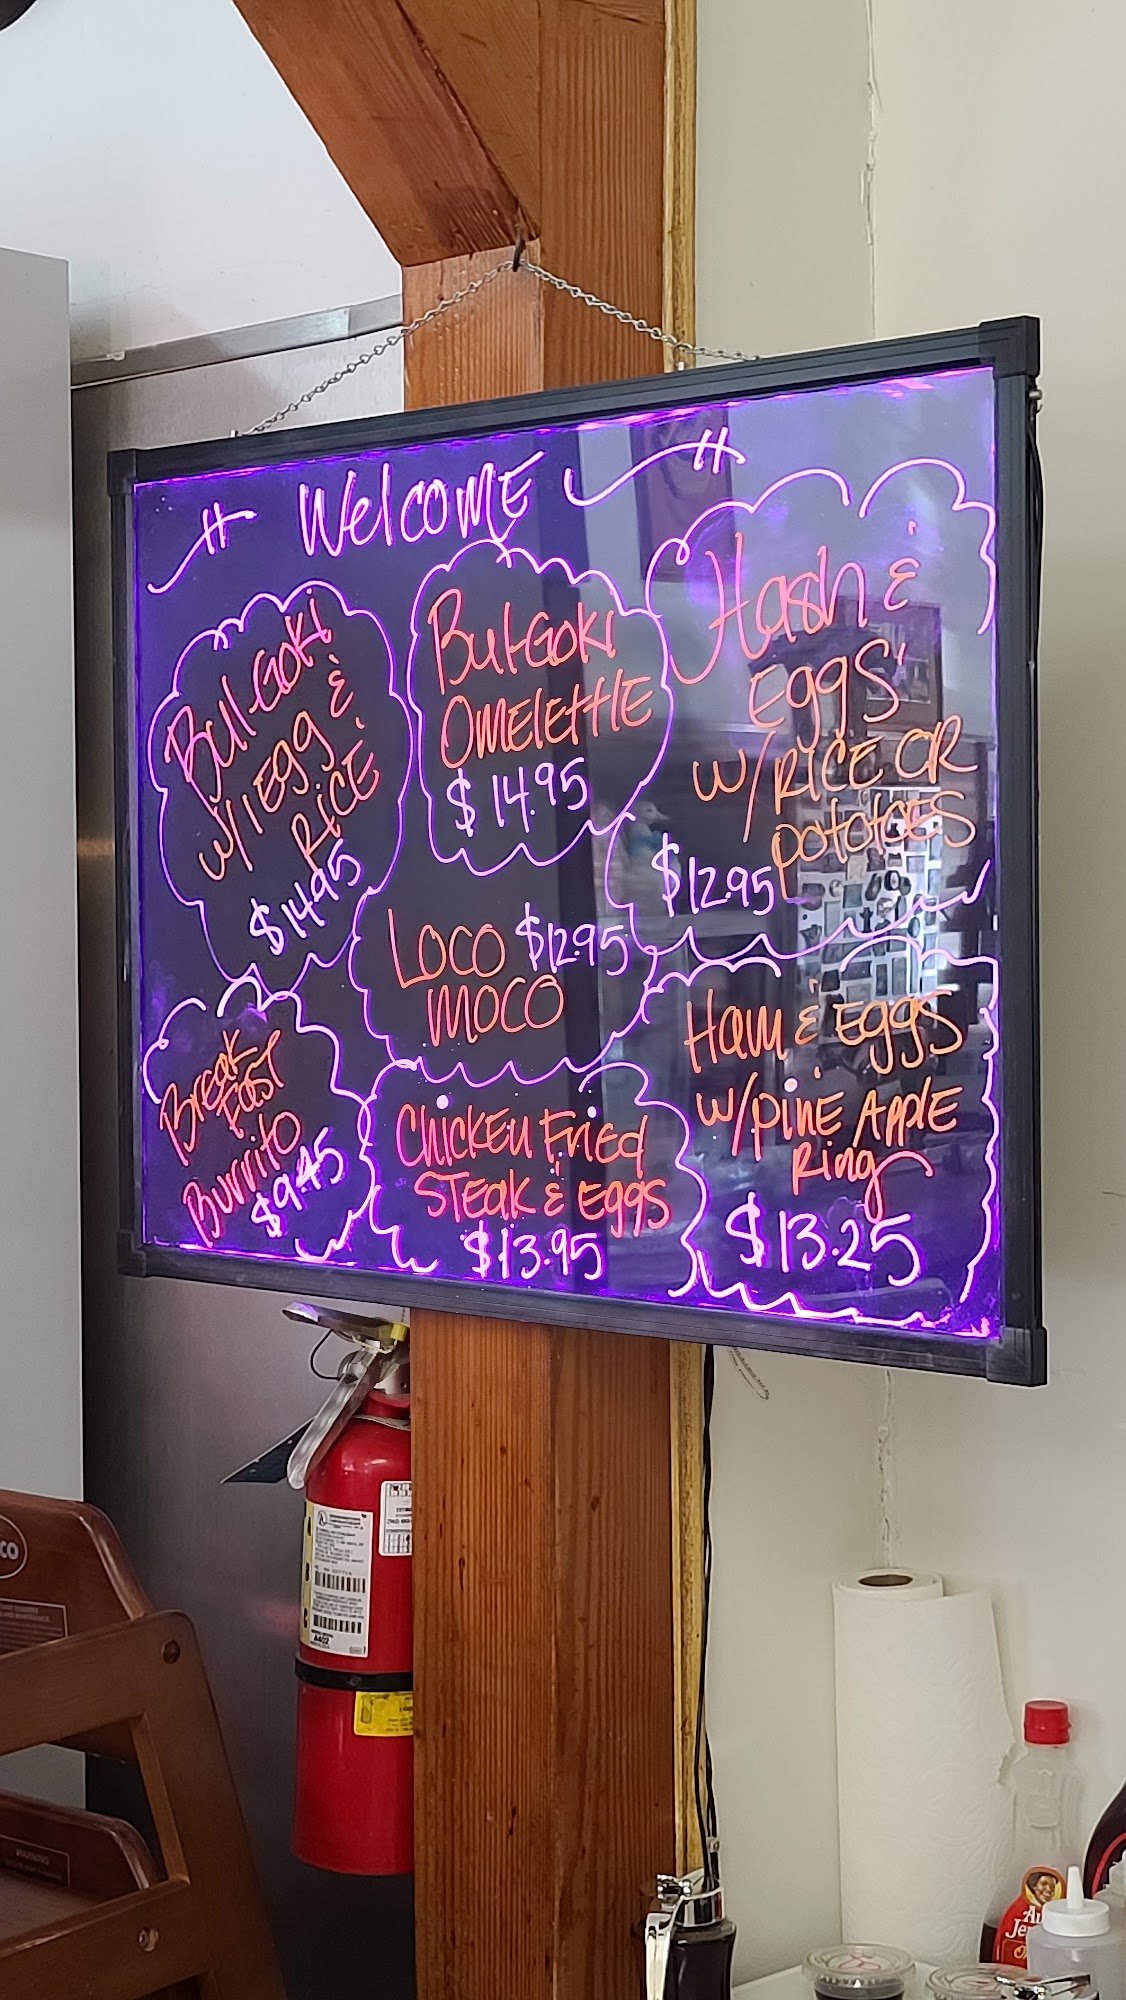 Welcome
Bul-Goki
w/1 Egg &
Rice
$14.95
Bul-Goki
Omelette
$14.95
Hash &
Eggs
w/Rice or
Potatoes
$12.95
Loco $12.95
Moco
Break
Fast
Burrito
$9.45
Chicken Fried
Steak & Eggs
$13.95
Ham & Eggs
w/Pine Apple
Ring
$13.25
CO
WARNING
A402